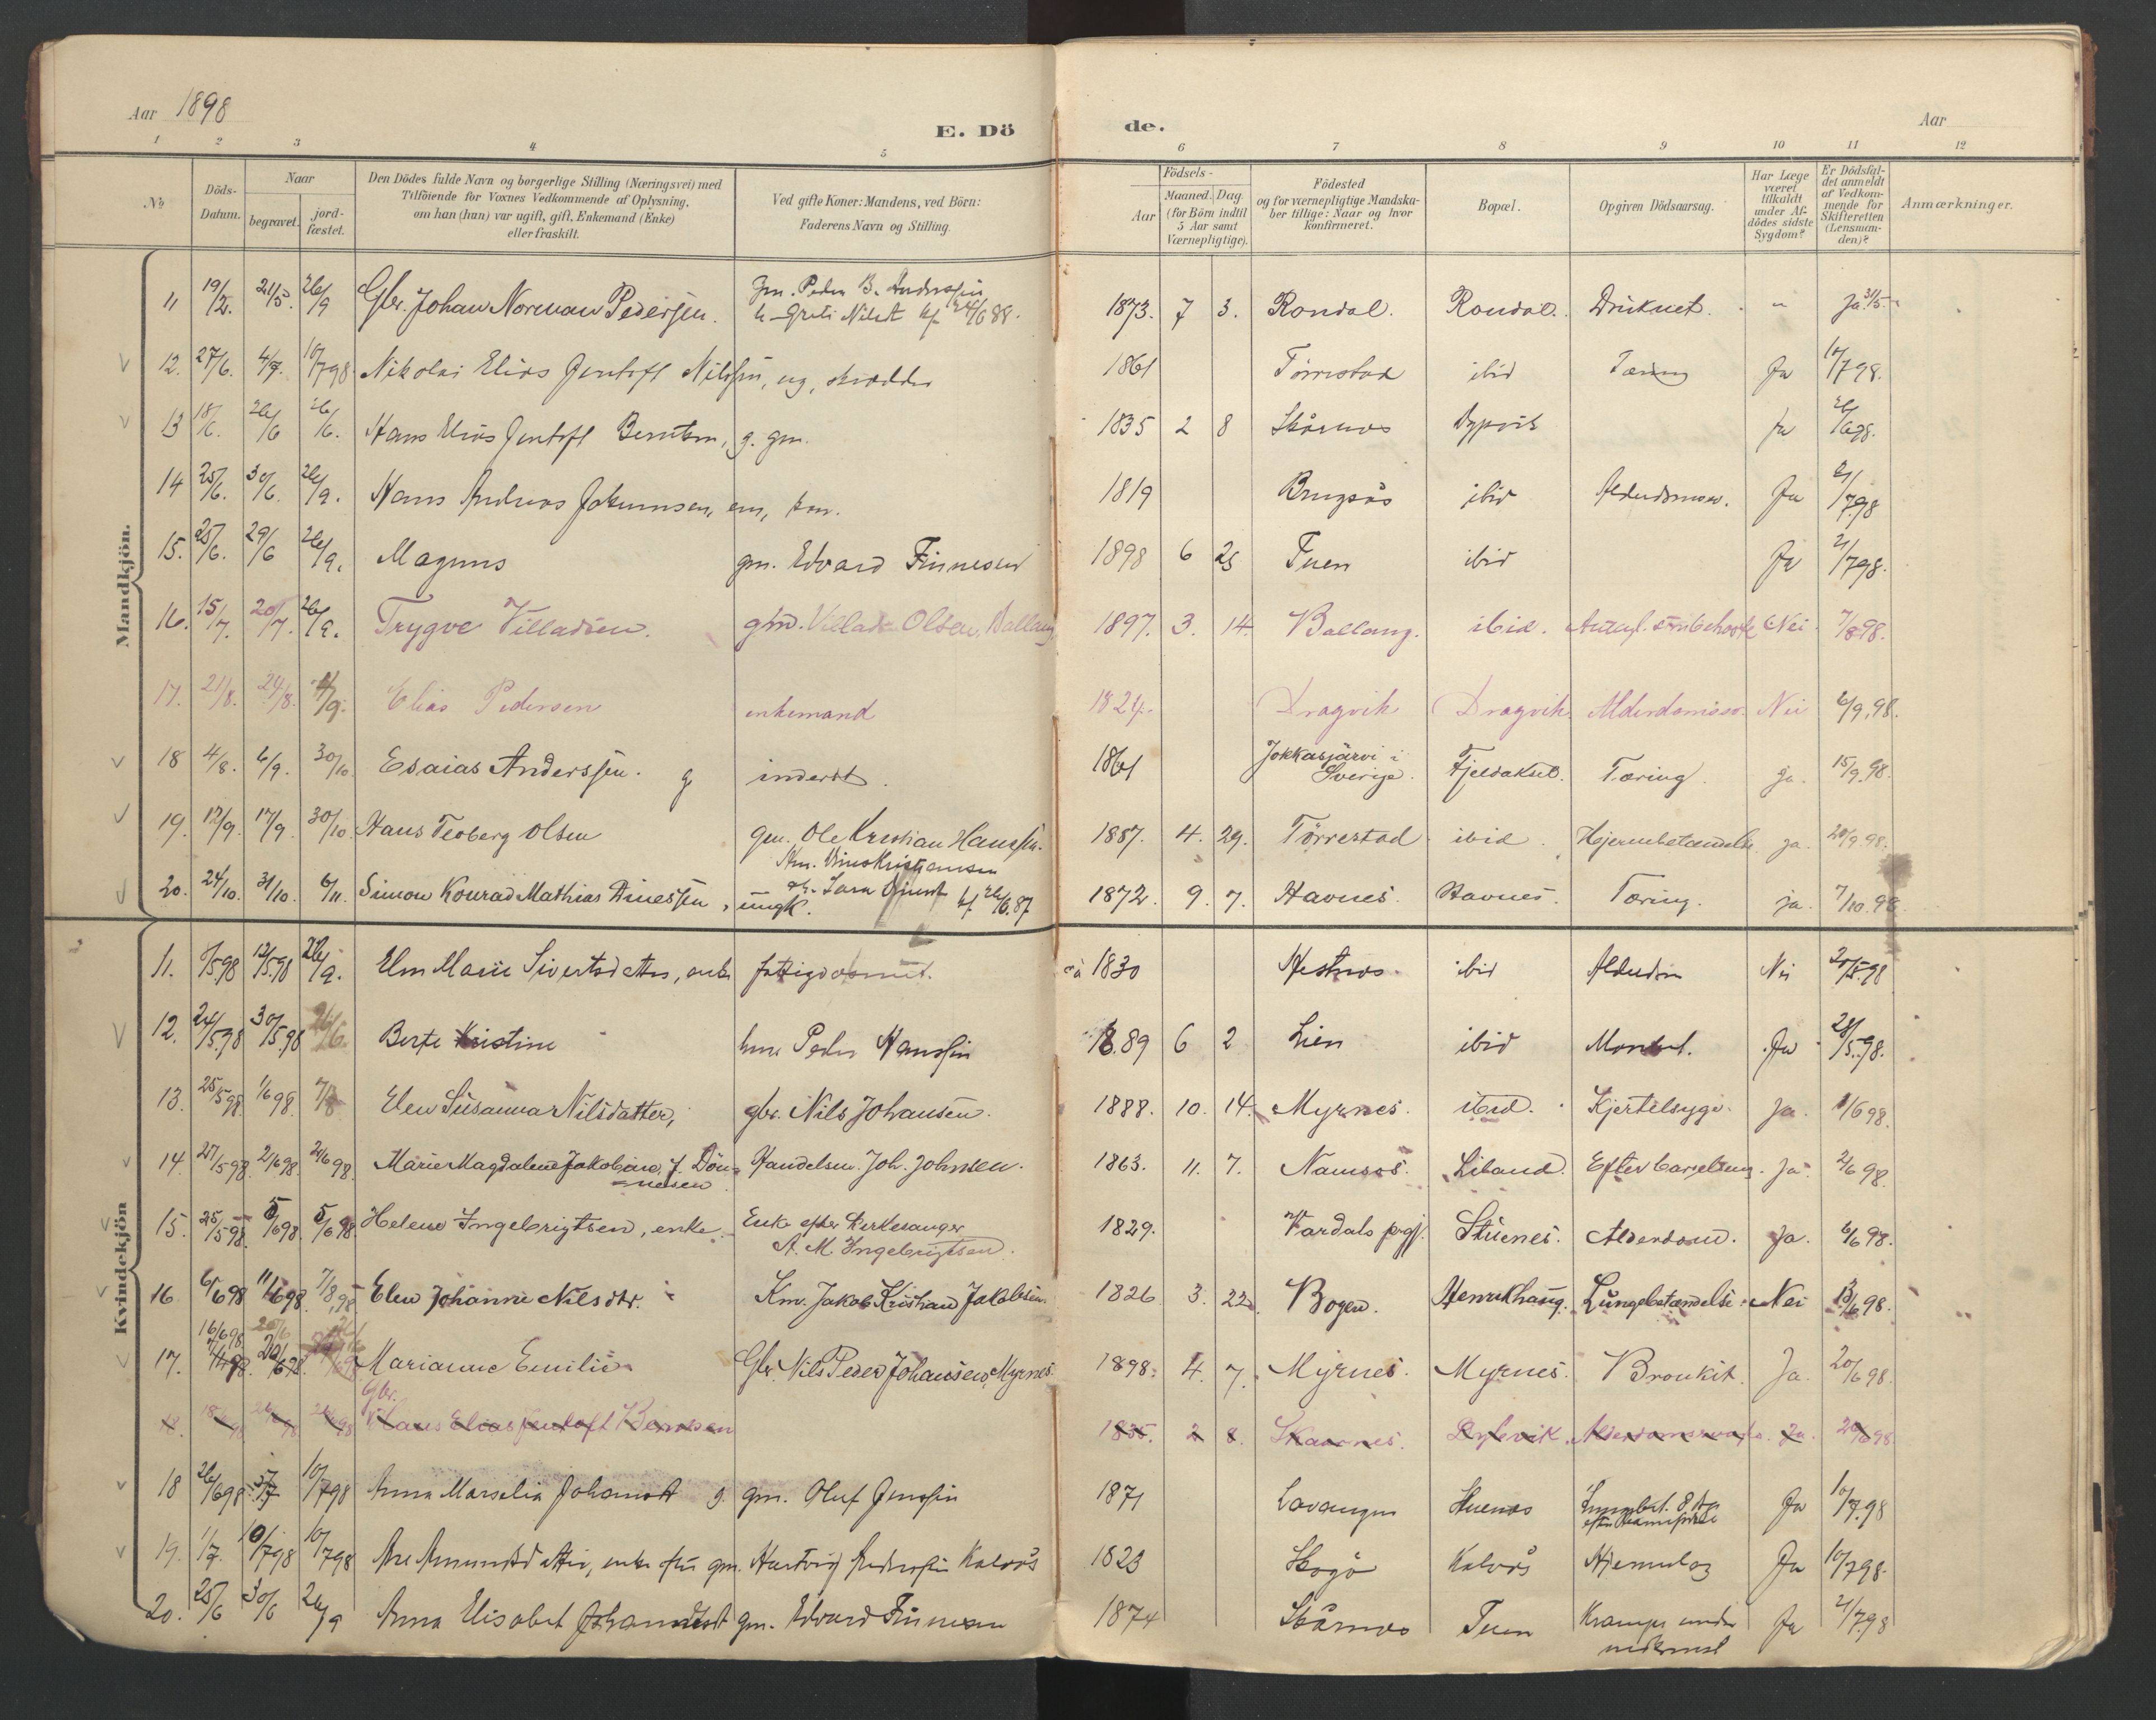 Aar 1898
E. Dö
de.
Aar
1 2 3 4 5 6 7 8 9 10 11 12
No
Döds-Datum.
Naar
begravet. jord-fæstet.
Den Dödes fulde Navn og borgerlige Stilling (Næringsvei) med
Tilföiende for Voxnes Vedkommende af Oplysning,
om han (hun) var ugift, gift, Enkemand (Enke)
eller fraskilt.
Ved gifte Koner: Mandens, ved Börn:
Faderens Navn og Stilling.
Födsels-
Aar Maaned. Dag.
(for Börn indtil
5 Aar samt
Værnepligtige).
Födested
og for værnepligtige Mandska-
ber tillige: Naar og hvor
konfirmeret.
Bopæl.
Opgiven Dödsaarsag.
Har Læge
været
tilkaldt
under Af-
dödes sidste
Sygdom?
Er Dödsfal-
det anmeldt
af Vedkom-
mende for
Skifteretten
(Lensman-
den)?
Anmærkninger.
Mandkjön.
11 19/2. 21/5. 26/9 Gbr. Johan Norman Pedersen. 1873. 7 3. Rondal. Rondal. Druknet. " Ja 31/5
12. 27/6. 4/7. 10/798 Nikolai Elias Jentoft Nilssen, ug, skrædder 1861 Törrestad ibid Tæring Ja 10/798.
13 18/6. 26/6 26/6. Hans Elias Jentoft Berntsen, g. gm. 1835 2 8 Skårnes Dypvik Ja 26/698.
14 25/6. 30/6. 26/9. Hans Andreas Jokumsen, em, 1819 ibid Ja 21/798
15. 25/6. 29/6 26/9. Magnus gm. Edvard Finnesen 1898 6 25 Tuen ibid Ja 21/798.
16. 15/7. 20/7. 26/9. Trygve Villadsen. gbr. Villads Olsen, Ballang 1897. 3. 14. Ballang. ibid. Nei 7/898.
17. 21/8. 24/8. 4/9. Elias Pedersen enkemand 1824. Dragvik Dragvik Alderdomssv. Nei 6/9.98.
18 4/8. 6/9. 30/10 Esaias Anderssen. g inderst. 1861 Jokkasjärvi i
Sverige. Fjeldaksel. Tæring. ja. 15/9.98.
19. 12/9. 17/9. 30/10. Hans Teoberg Olsen gm. Ole Kristian Hanssen. 1887. 4. 29. Törrestad ibid. Hjernebetændelse ja. 20/9.98.
20. 24/10. 31/10. 6/11. Simon Konrad Mathias Dinessen, ungk. 1872. 9. 7. Havnes. Havnes. Tæring. ja. 7/10.98
Kvindekjön
11. 8/598 12/598 26/9. Marie Sivertsdatter, enke 1830 Hestnes ibid Alderdom Nei 20/598
12. 24/598 30/598 26/6. Berte Kristine Peder Hanssen 1889 6 2 Lien ibid Ja 28/598.
13. 25/598. 1/698. 7/8 Elen Susanna Nilsdatter, gbr. Nils Johansen. 1888. 10. 14. Myrnes. ibid. Kjertelsyge. Ja. 1/698.
14. 27/598. 2/698. 26/698. Marie Magdalene Jakobine, f. Dön-
nesen Handelsm. Joh. Johnsen. 1863. 11. 7. Namsos. Liland. Efter barselseng. Ja. 2/698.
15. 25/598. 5/698. 5/698. Helene Ingebrigtsen, enke. Enke efter Kirkesanger
A. M. Ingebrigtsen. 1829. Vardals prgj. Stuenes. Alderdom. Ja. 6/698.
16 6/698 11/698. 7/8.98 Elen Johanne Nilsdtr. Km. Jakob Kristian Jakobsen. 1826 3. 22. Bogen. Henrikhaug. Lungebetændelse. Nei 13/698.
16/698. 20/6
17. 20/698. Marianne Emilie Gbr. Nils Peder Johansen, Myrnes. 1898. 4. 7. Myrnes. Myrnes. Bronkit. Ja. 20/698.
18. Gbr. Hans Elias Jentoft Berntsen 1835. 2 8. Skaarnes. Dybvik. Ja. 26/698.
18 26/698 10/798 Anna Marselia g. gm. Oluf Jenssen 1871 Lavangen Ja 10/798
19. 1/7. 10/798 10/798 Ane Amundsdatter, enke efter gm. Hartvig Anderssen Kalvås 1823 Skogö Kalvås Hjerneslag Ja 10/798.
20. 25/6 30/6 26/9 Anna Elisabet gm. Edvard Finnesen 1874 Skårnes Tuen Krampe under
nedkomst Ja 21/798